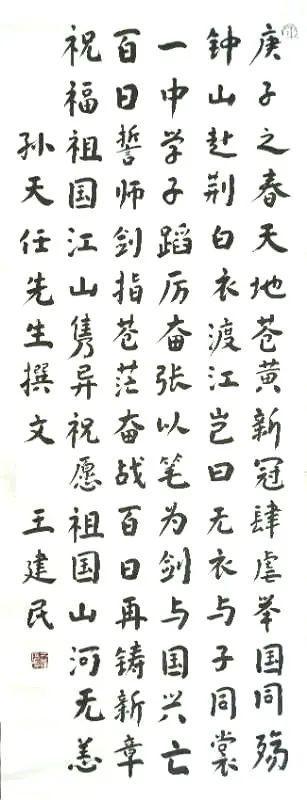 庚子之春天地苍黄新冠肆虐举国同殇
钟山赴荆白衣渡江岂曰无衣与子同裳
一中学子蹈厉奋张以笔为剑与国兴亡
百日誓师剑指苍茫奋战百日再铸新章
祝福祖国江山隽异祝愿祖国山河无恙
孙天任先生撰文 王建民